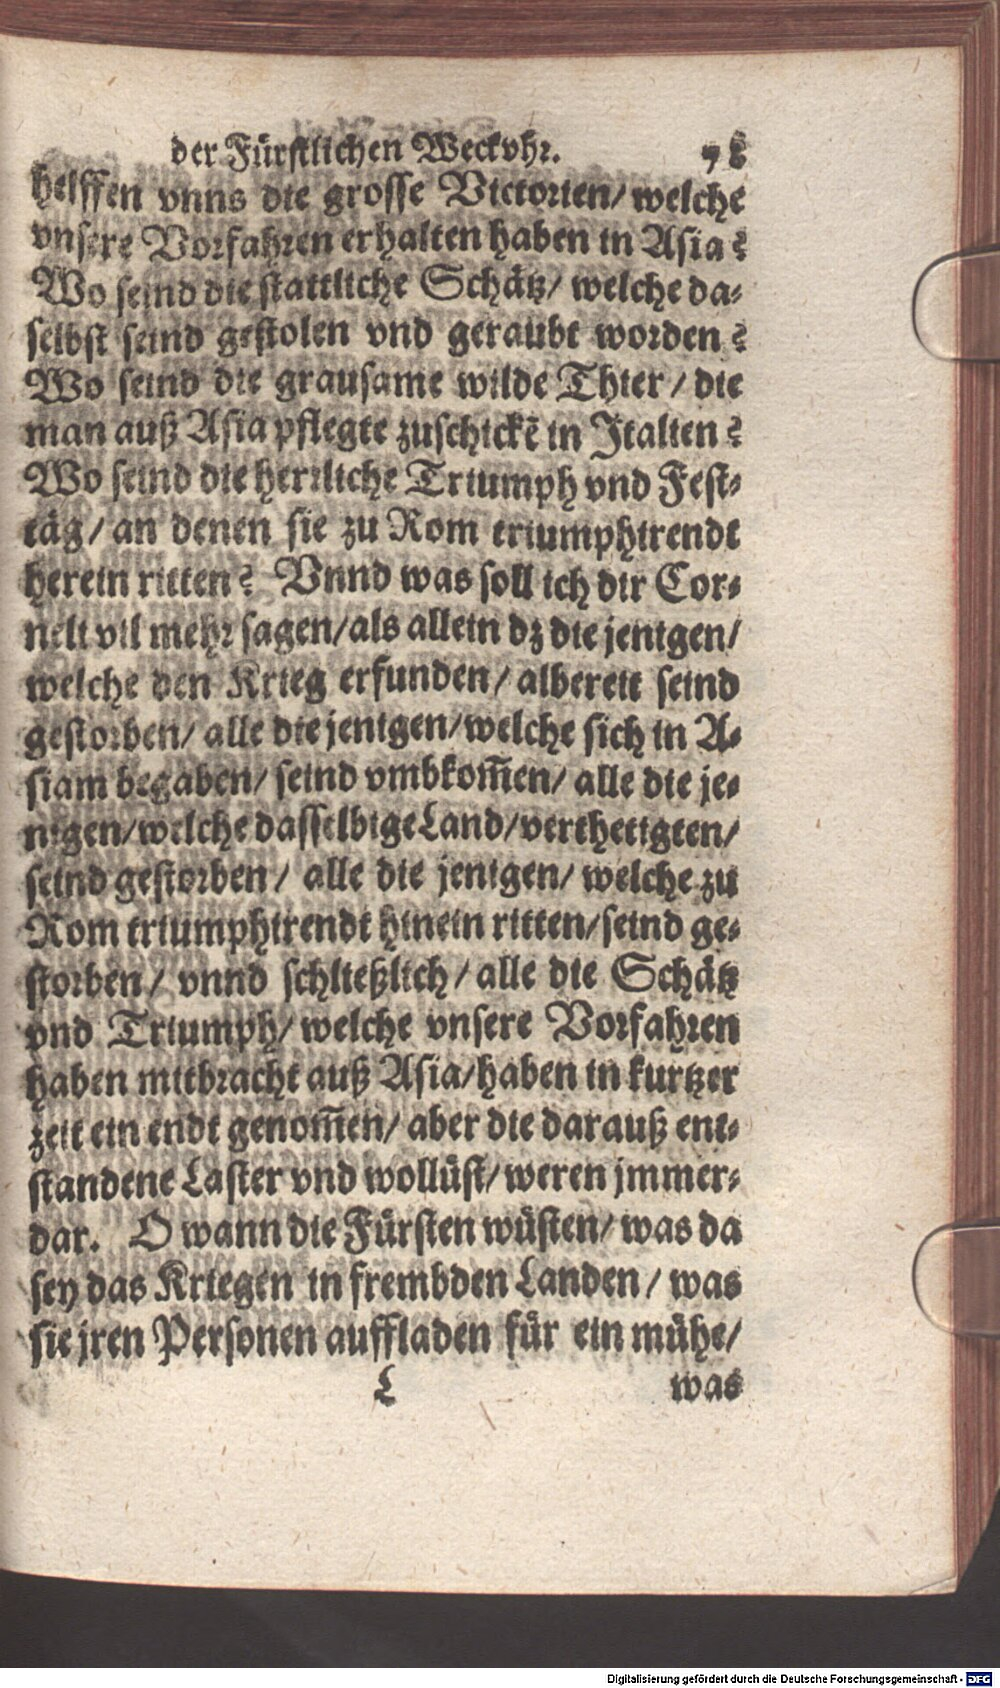 der Fürstlichen Weckvhr. 78
helffen vnns die grosse Victorien/ welche
vnsere Vorfahren erhalten haben in Asia?
Wo seind die stattliche Schätz/ welche da-
selbst seind gestolen vnd geraubt worden?
Wo seind die grausame wilde Thier / die
man auß Asia pflegte zuschickē in Italien?
Wo seind die herrliche Triumph vnd Fest-
täg/ an denen sie zu Rom triumphirendt
herein ritten? Vnnd was soll ich dir Cor-
neli vil mehr sagen/als allein dz die jenigen/
welche den Krieg erfunden/ albereit seind
gestorben/ alle die jenigen/welche sich in A-
siam begaben/ seind vmbkom̃en/ alle die je-
nigen/welche dasselbige Land/vertheigten/
seind gestorben/ alle die jenigen/ welche zu
Rom triumphirendt hinein ritten/seind ge-
storben/ vnnd schließlich/ alle die Schätz
vnd Triumph/ welche vnsere Vorfahren
haben mitbracht auß Asia/haben in kurtzer
zeit ein endt genom̃en/ aber die darauß ent-
standene Laster vnd wollüst/ weren jmmer-
dar. O wann die Fürsten wüsten/ was da
sey das Kriegen in frembden Landen/ was
sie jren Personen auffladen für ein mühe/
L was
Digitalisierung gefördert durch die Deutsche Forschungsgemeinschaft - DFG